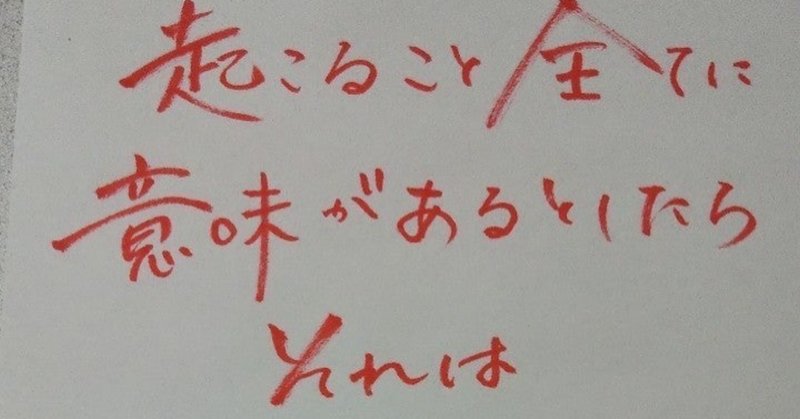 起こること全てに
意味があるとしたら
それは